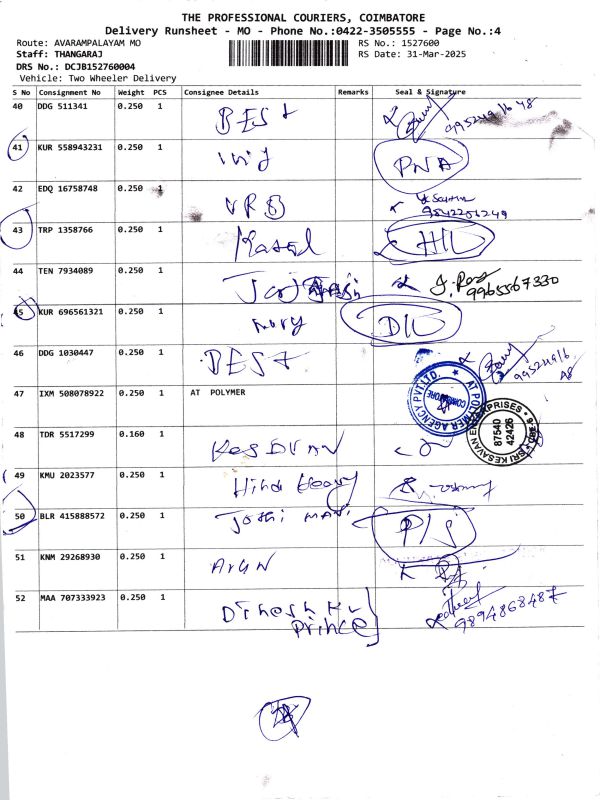 THE PROFESSIONAL COURIERS, COIMBATORE
Delivery Runsheet - MO - Phone No.:0422-3505555 - Page No.:4
Route: AVARAMPALAYAM MO
RS No.: 1527600
Staff: THANGARAJ
RS Date: 31-Mar-2025
DRS No.: DCJB152760004
Vehicle: Two Wheeler Delivery
S No Consignment No Weight PCS Consignee Details Remarks Seal & Signature
40 DDG 511341 0.250 1 BEST
41 KUR 558943231 0.250 1 PNA
42 EDQ 16758748 0.250 1 VRB 9842256249
43 TRP 1358766 0.250 1 HIL
44 TEN 7934089 0.250 1 9965567330
45 KUR 696561321 0.250 1 DIL
46 DDG 1030447 0.250 1 BEST
47 IXM 508078922 0.250 1 AT POLYMER
AT POLYMER AGENCY PVT.LTD. COIMBATORE
SRI KESAVAN ENTERPRISES
87540
42426
48 TDR 5517299 0.160 1 KesavAN
49 KMU 2023577 0.250 1
50 BLR 415888572 0.250 1 Joshi
51 KNM 29268930 0.250 1 ArUN
52 MAA 707333923 0.250 1 Dinesh Ku
Prince
9894868487